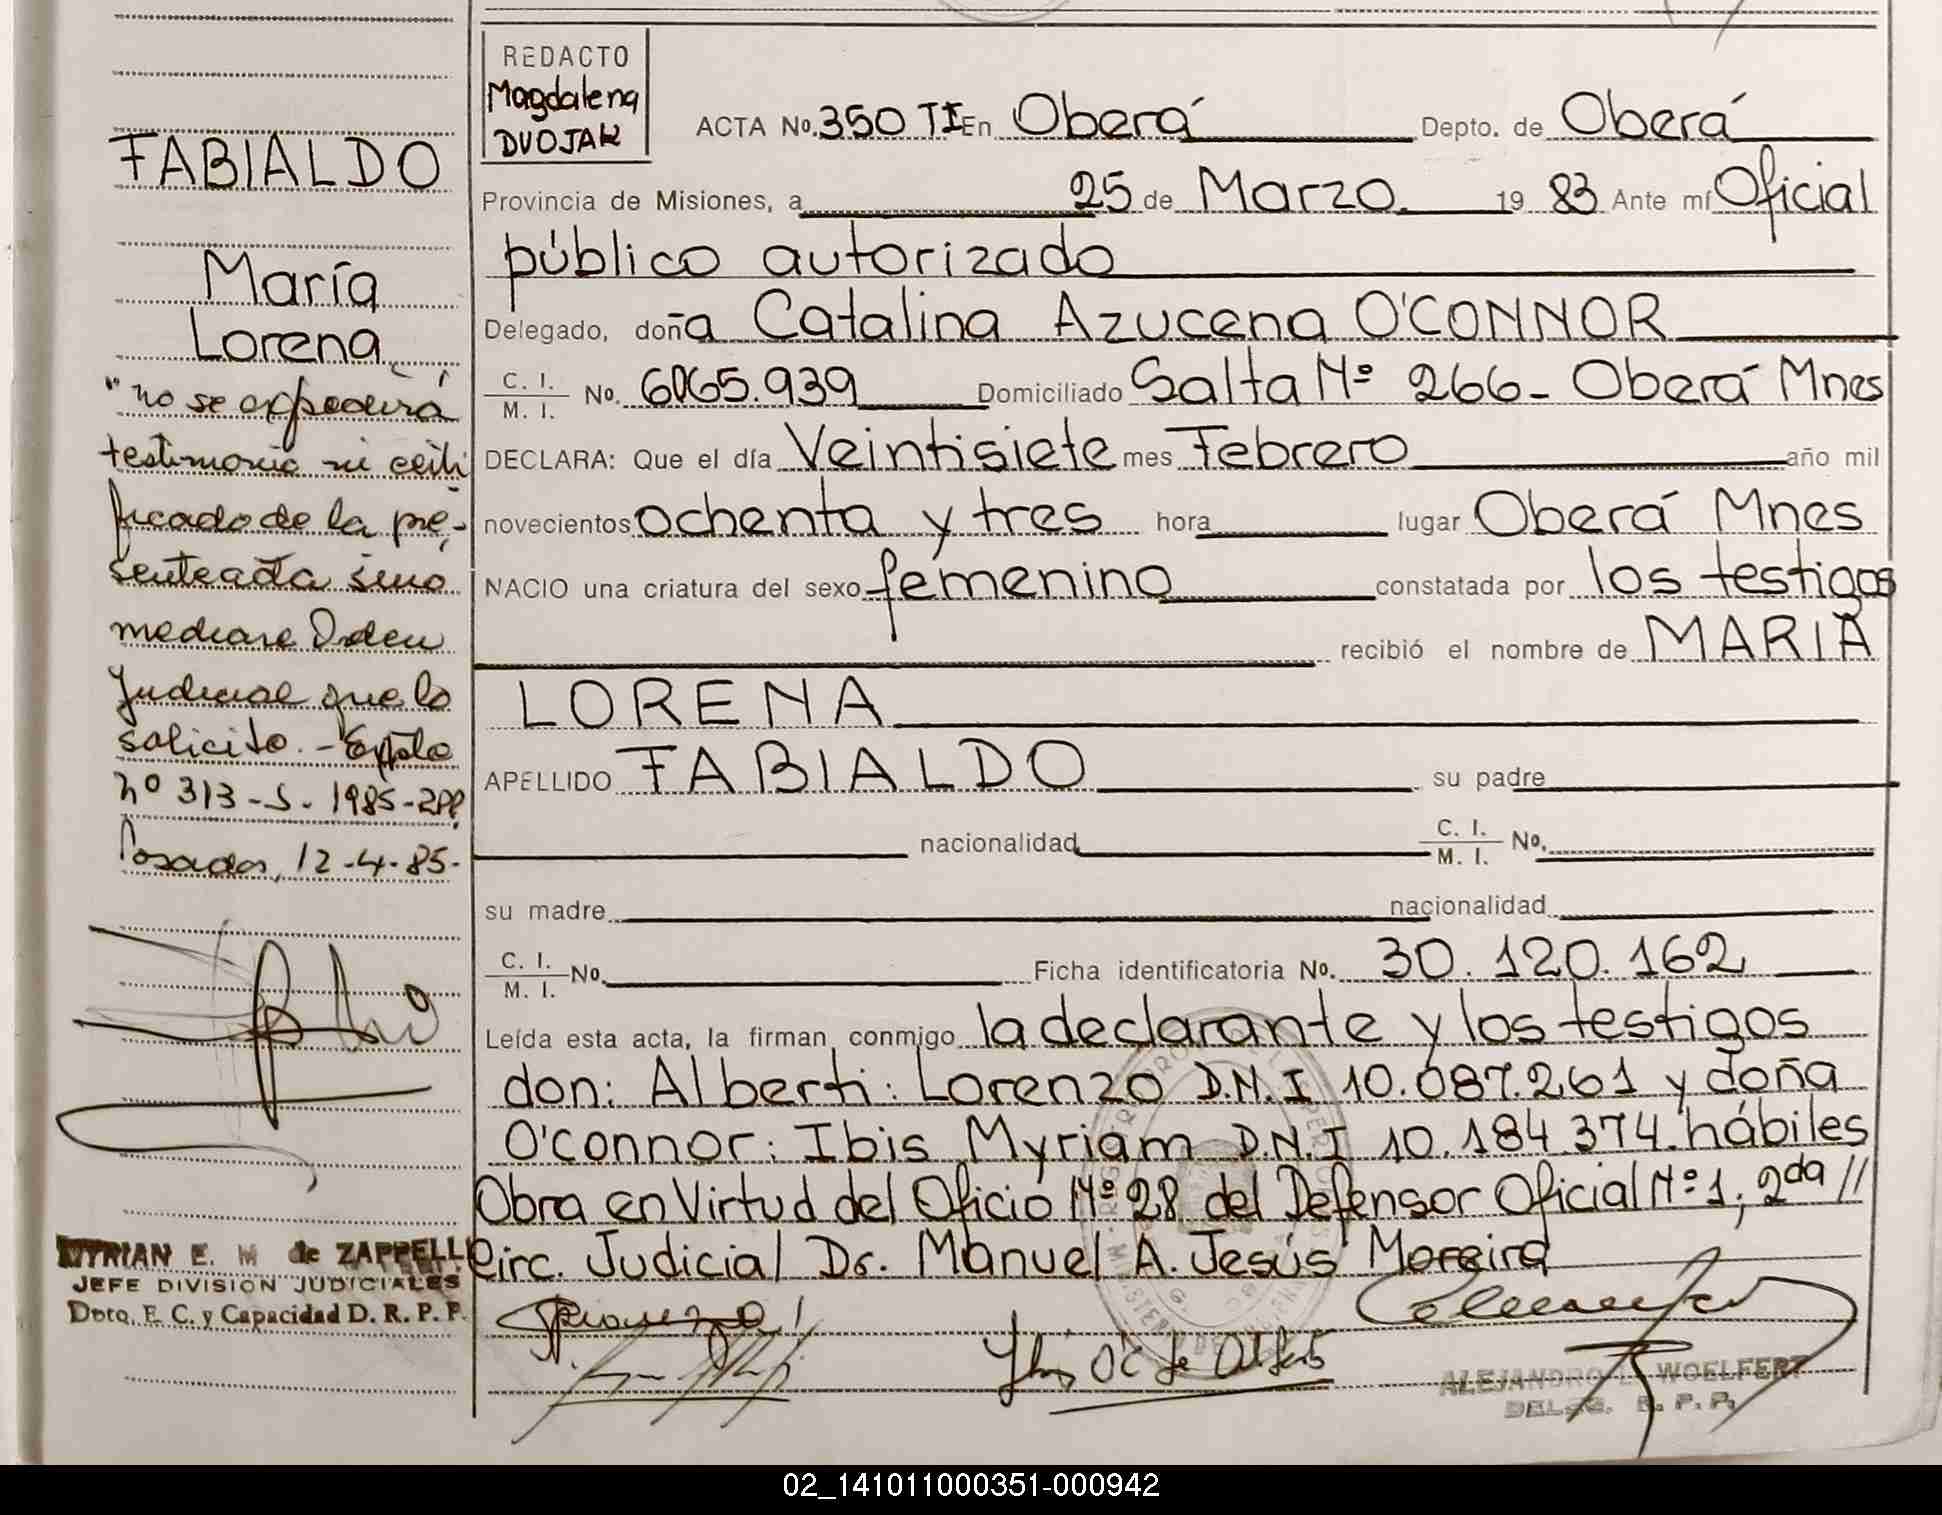 REDACTO
Magdalena
DVOJAK
ACTA No. 350 TI En Oberá Depto. de Oberá
Provincia de Misiones, a 25 de Marzo 19 83 Ante mí Oficial
público autorizado
Delegado, doña Catalina Azucena O'CONNOR
C. I.
M. I. No. 6065.939 Domiciliado Salta Nº 266 - Oberá Mnes
DECLARA: Que el día Veintisiete mes Febrero año mil
novecientos ochenta y tres hora lugar Oberá Mnes
NACIO una criatura del sexo femenino constatada por los testigos
recibió el nombre de MARIA
LORENA
APELLIDO FABIALDO su padre
nacionalidad C. I.
M. I. No.
su madre nacionalidad
C. I.
M. I. No. Ficha identificatoria No. 30.120.162
Leída esta acta, la firman conmigo la declarante y los testigos
don: Alberti: Lorenzo D.N.I 10.087.261 y doña
O'connor: Ibis Myriam D.N.I 10.184.374. hábiles
Obra en Virtud del Oficio Nº 28 del Defensor Oficial Nº 1, 2da //
Circ. Judicial Dr. Manuel A. Jesús Moreira
ALEJANDRO L. WOELFERT
DELEG. R. P. P.
FABIALDO
María
Lorena
"no se expedirá
testimonio ni certi
ficado de la pre-
sente acta sino
mediare Orden
Judicial que lo
solicite. - Expte
nº 313-S-1985-
Posadas, 12-4-85-
MYRIAN E. M de ZAPPELLI
JEFE DIVISION JUDICIALES
Dpto. E. C. y Capacidad D. R. P. P.
02_141011000351-000942